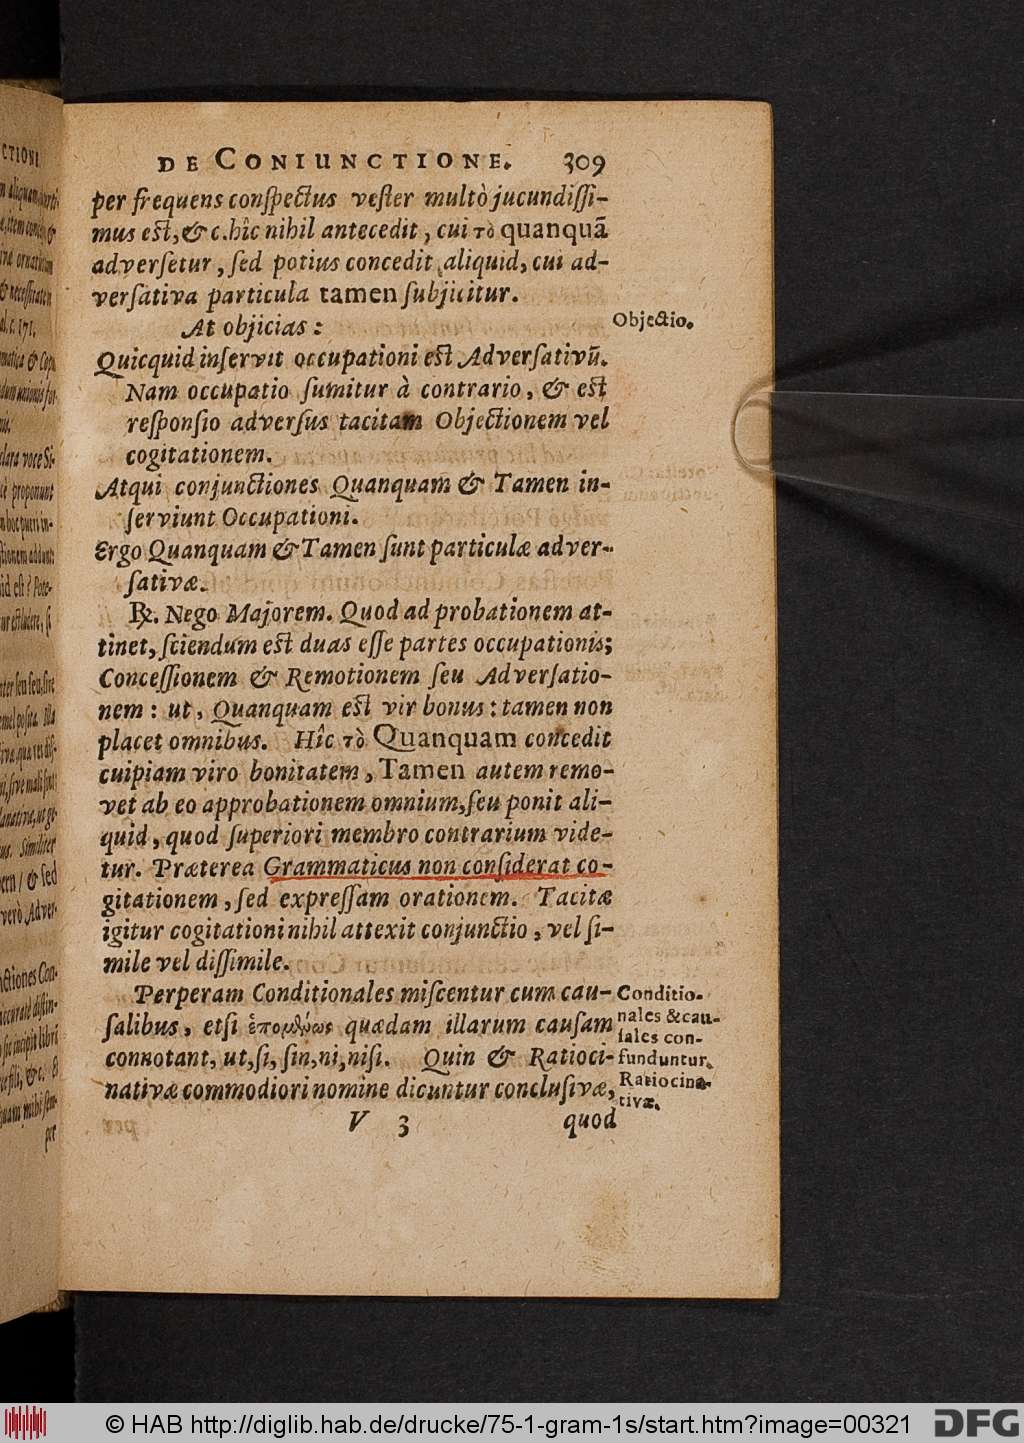 DE CONIUNCTIONE. 309
per frequens conſpectus veſter multò jucundiſſi-
mus eſt, & c. hîc nihil antecedit, cui τὸ quanquã
adverſetur, ſed potius concedit aliquid, cui ad-
verſativa particula tamen ſubjicitur.
At objicias:
Objectio.
Quicquid inſervit occupationi eſt Adverſativũ.
Nam occupatio ſumitur à contrario, & eſt
reſponſio adverſus tacitam Objectionem vel
cogitationem.
Atqui conjunctiones Quanquam & Tamen in-
ſerviunt Occupationi.
Ergo Quanquam & Tamen ſunt particulæ adver-
ſativæ.
℞. Nego Majorem. Quod ad probationem at-
tinet, ſciendum eſt duas eſſe partes occupationis;
Conceſſionem & Remotionem ſeu Adverſatio-
nem: ut, Quanquam eſt vir bonus: tamen non
placet omnibus. Hîc τὸ Quanquam concedit
cuipiam viro bonitatem, Tamen autem remo-
vet ab eo approbationem omnium, ſeu ponit ali-
quid, quod ſuperiori membro contrarium vide-
tur. Præterea Grammaticus non conſiderat co-
gitationem, ſed expreſſam orationem. Tacitæ
igitur cogitationi nihil attexit conjunctio, vel ſi-
mile vel diſſimile.
Perperam Conditionales miſcentur cum cau-
ſalibus, etſi quædam illarum cauſam
connotant, ut, ſi, ſin, ni, niſi. Quin & Ratioci-
nativæ commodiori nomine dicuntur concluſivæ,
Conditio-
nales & cau-
ſales con-
funduntur.
Ratiocina-
tivæ.
V 3 quod
© HAB http://diglib.hab.de/drucke/75-1-gram-1s/start.htm?image=00321
DFG